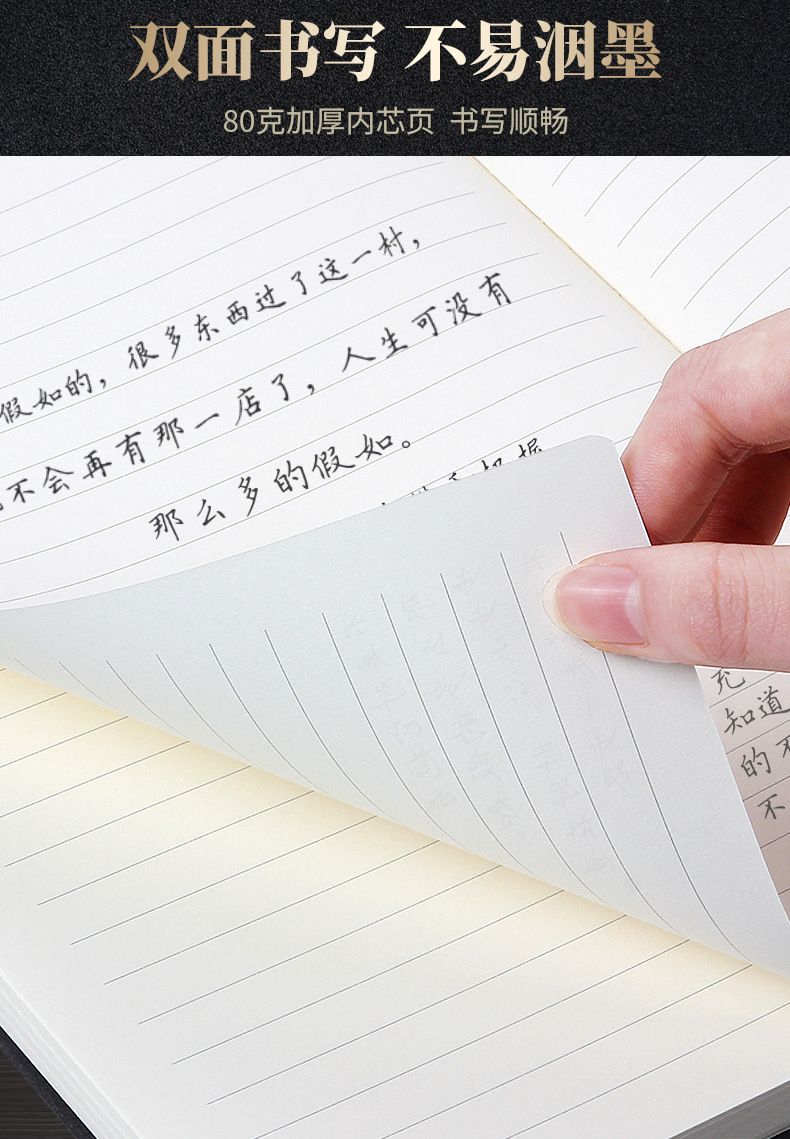 双面书写 不易洇墨
80克加厚内芯页 书写顺畅
假如的，很多东西过了这一村，
不会再有那一店了，人生可没有
那么多的假如。
知道
的不
不